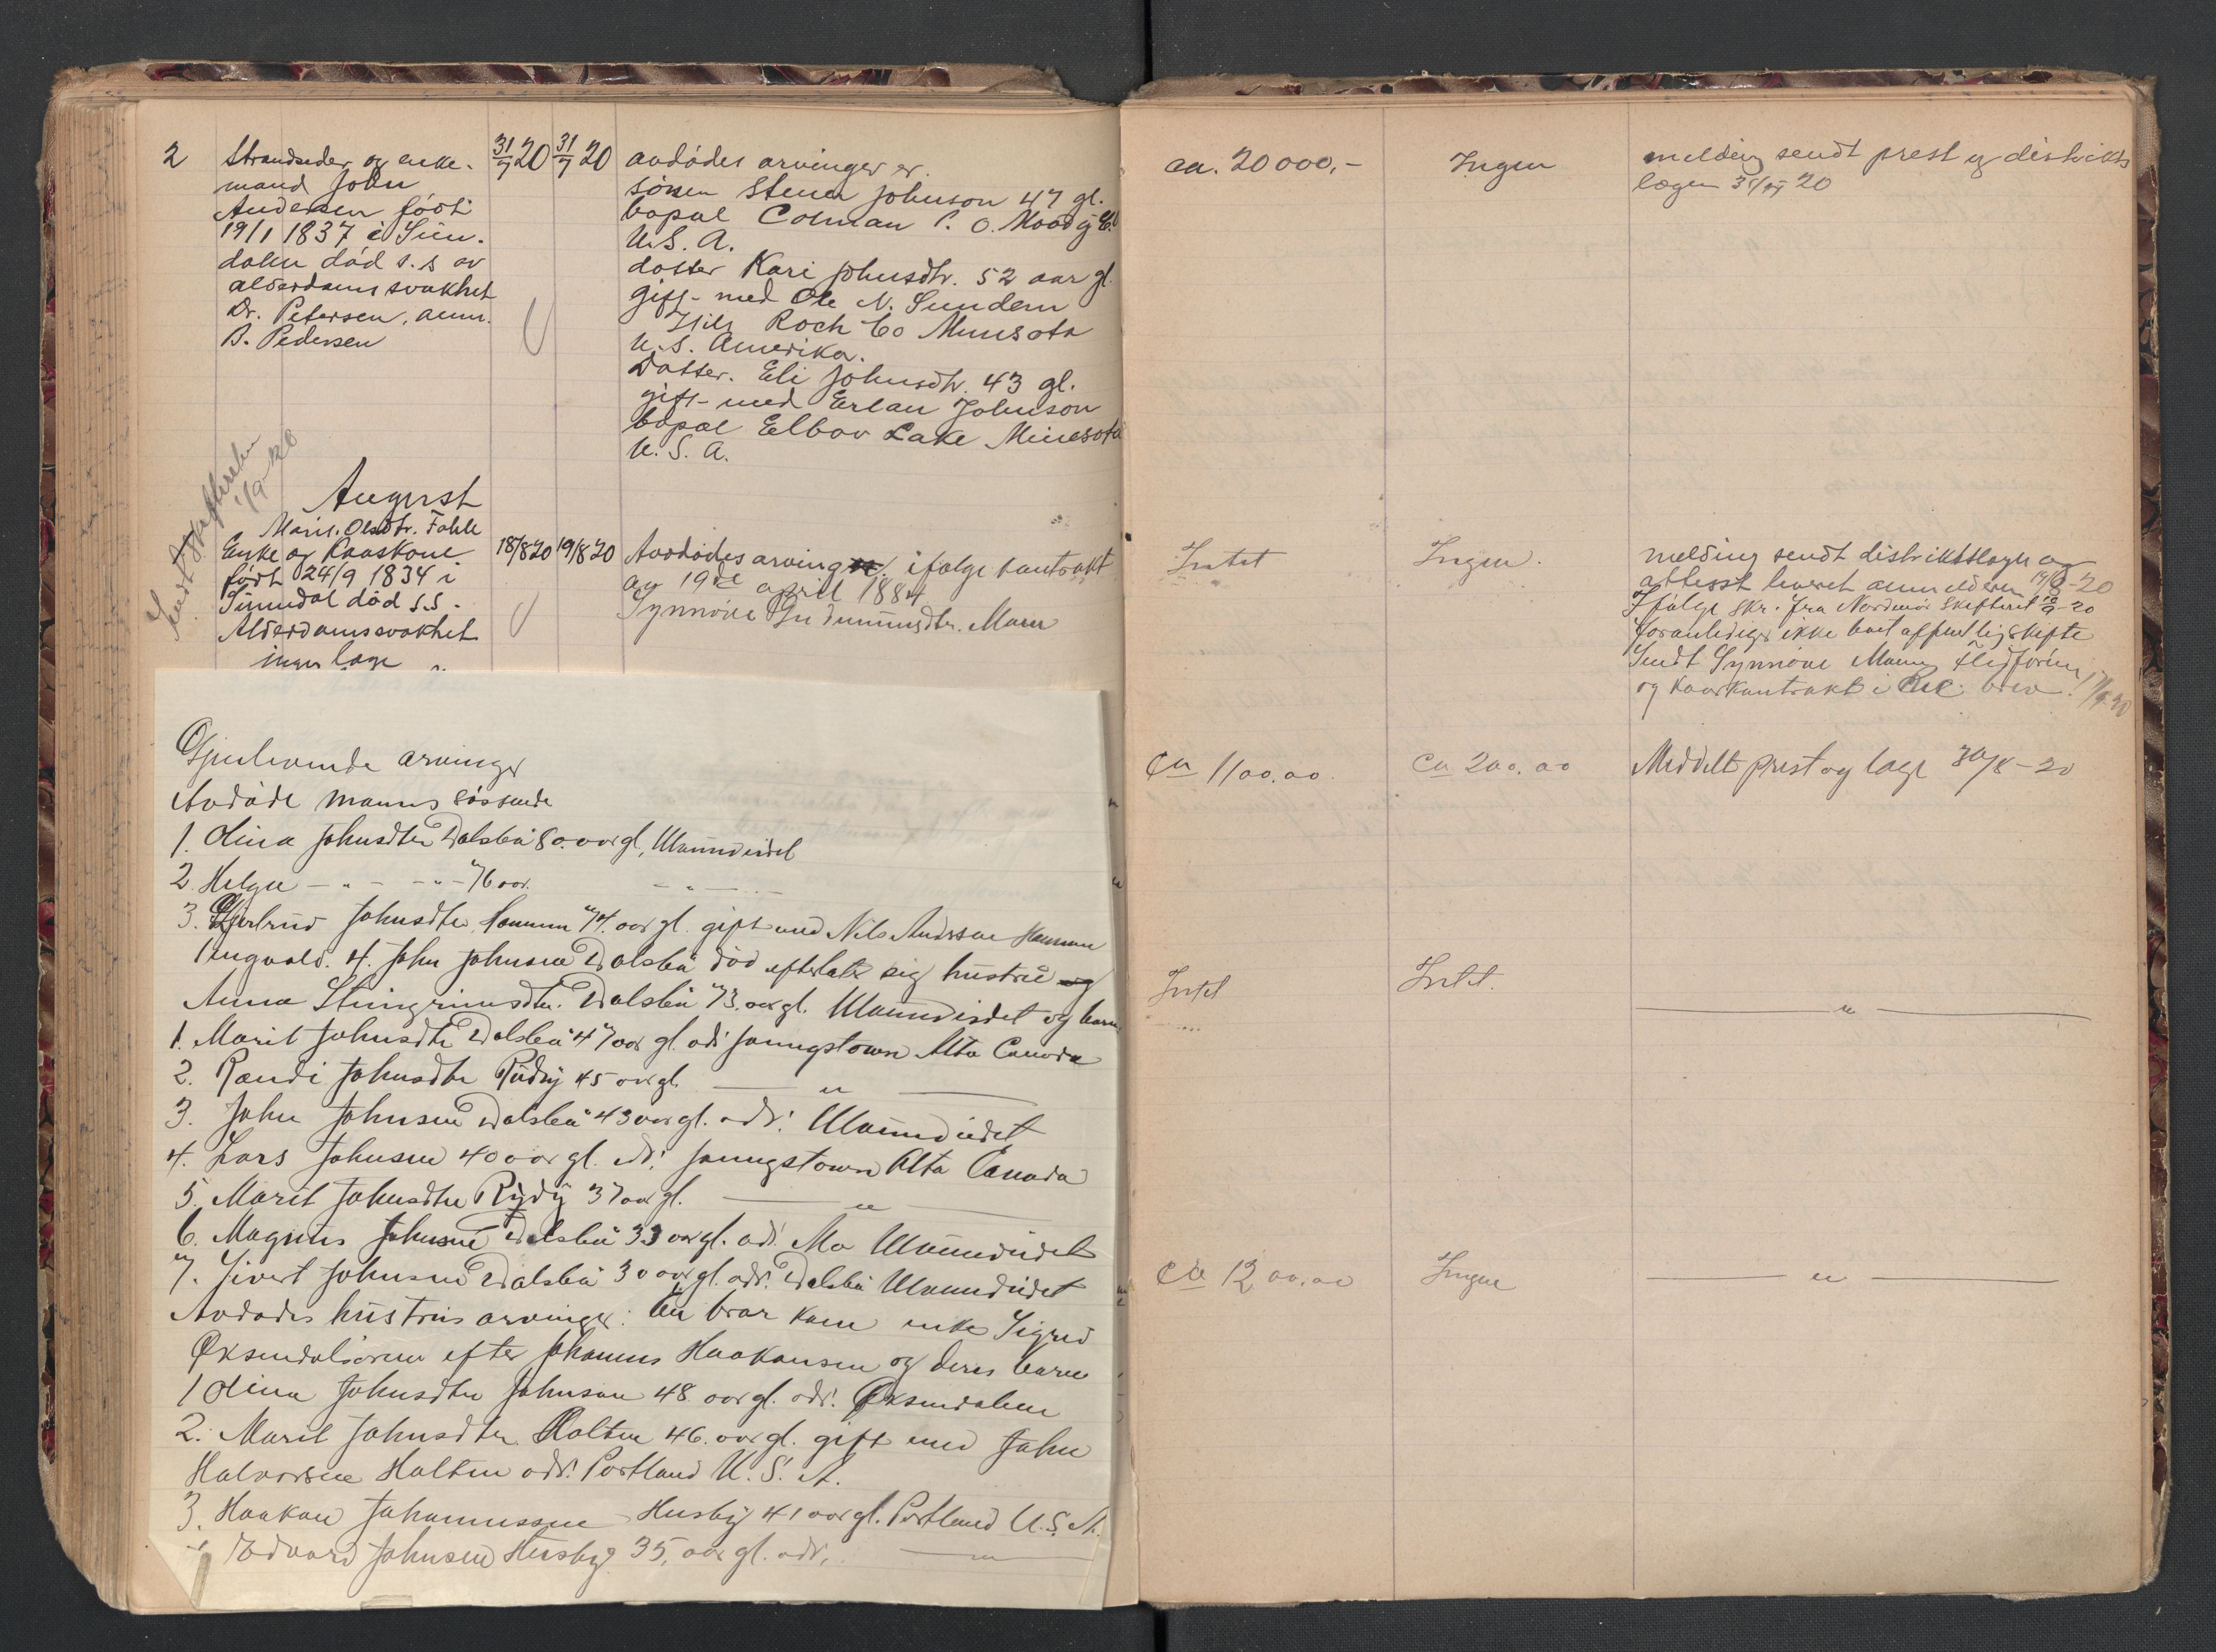 2
Strandsider og enke-
mand John
Andersen født
19/1 1837 i Sun-
dalen död s. s av
alderdomssvakhet
Dr. Petersen, anm.
B. Pedersen
31/7 20
31/7 20
avdödes arvinger er.
sönen Stener Johnson 47 gl.
bopæl Colman P. O. Moody Co
U.S. A.
datter Kari Johnsdtr. 52 aar gl.
gift med Ole N. Sundem
Hils Roch Co Minnsota
U.S. Amerika.
Datter. Eli Johnsdtr. 43 gl.
gift med Erlan Johnson
bopæl Elbov Lake Minesota
U. S. A.
ca. 20 000,-
Ingen
melding sendt prest og distrikts
lægen 31/7 20
Sendt skifteretten
1/9-20
August
Marit. Olsdtr. Fahle
Enke og Kaarkone
født 24/9 1834 i
Sunndal död s.s.
Alderdomssvakhet
ingen læge
18/8 20
19/8 20
Avdödes arving ifølge kontrakt
av 19de april 1884
Synnöve Gudmundsdtr. Mæle
Intet
Ingen.
melding sendt distriktslægen og
attesst levert anmelderen 19/8-20
Ifølge skr. fra Nordmör skifteret 10/9-20
foranlediges ikke holdt offentlig skifte
Sendt Synnöve
og kaarkontrakt i Rek. brev. 17/9.20
Gjenlevende arvinger
Avdöde manns søssende
1. Olina Johnsdter Dalsbö 80. aar gl, Ulvundeidet
2. Helga - " - - " - 76 aar. - " -
3. Gjertrud Johnsdter Hammen 74. aar gl. gift med Nils Anderssen Hammen
Tingvold. 4. John Johnsen Dalsbö död efterlater sig hustru og
Anna Steingrimsdtr. Dalsbö 73. aar gl. Ulvundeidet og barn
1. Marit Johnsdtr Dalsbö 47 aar gl. adr Joungstown Alta Canada
2. Randi Johnsdtr Rydij 45 aar gl. — " —
3. John Johnsen Dalsbö 43 aar gl. adr: Ulvundeidet
4. Lars Johnsen 40 aar gl. adr: Joungstown Alta Canada
5. Marit Johnsdtr Rydij 37 aar gl. — " —
6. Magnus Johnsen Dalsbö 33 aar gl. adr: Mo Ulvundeidet
7. Sivert Johnsen Dalsbö 30 aar gl. adr: Dalsbö Ulvundeidet
Avdödes hustrus arvinger: En bror kone enke Sigrid
Øksendalsören efter Johannes Haakonsen og deres barn
1 Olina Johnsdtr Johnson 48 aar gl. adr: Øksendalen
2. Marit Johnsdtr. Holten 46. aar gl. gift med John
Halvorsen Holten adr: Portland U. S. A.
3. Haakon Johannessen Husby 41 aar gl. Portland U. S. A.
4 Edvard Johnsen Husby 35, aar gl. adr, — " —
Ca 1100.00.
Ca 200.00
Meddelt prest og læge 30/8-20
Intet
Intet.
— " —
Ca 1200.00
Ingen
— " —